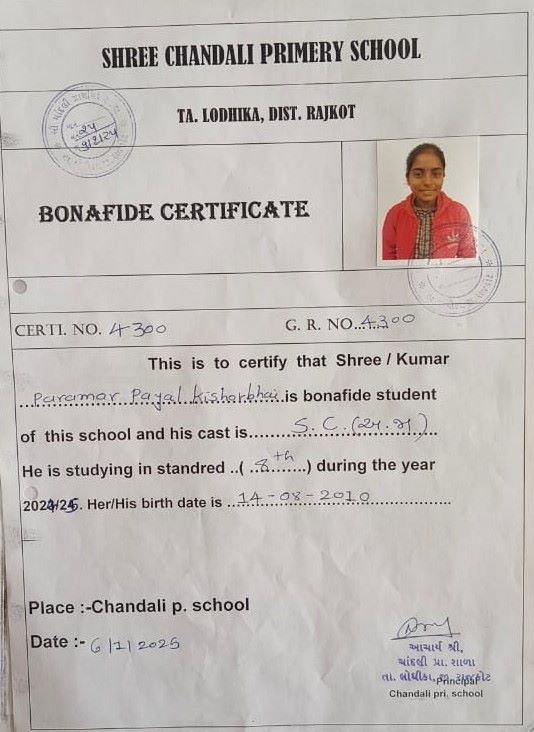 SHREE CHANDALI PRIMERY SCHOOL
TA. LODHIKA, DIST. RAJKOT
BONAFIDE CERTIFICATE
CERTI. NO. 4300
G. R. NO....4300
This is to certify that Shree / Kumar
Paramar Payal Kishorbhai is bonafide student
of this school and his cast is......S. C. (અ.જા)...
He is studying in standred ..( .8th.......) during the year
2024/25. Her/His birth date is ...14-08-2010...
Place :-Chandali p. school
Date :- 6/1/2025
આચાર્ય શ્રી,
ચાંદલી પ્રા. શાળા
તા. લોધીકા, જી. રાજકોટ
Principal
Chandali pri, school